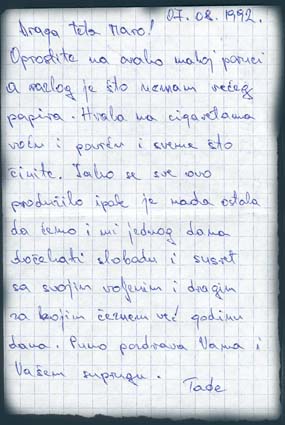 07.08.1992.
Draga teta Maro!
Oprostite na ovako maloj poruci
a razlog je što nemam većeg
papira. Hvala na cigaretama
voću i povrću i svemu što
činite. Iako se sve ovo
produžilo ipak je nada ostala
da ćemo i mi jednog dana
dočekati slobodu i susret
sa svojim voljenim i dragim
za kojim čeznem već godinu
dana. Puno pozdrava Vama i
Vašem suprugu.
Tade